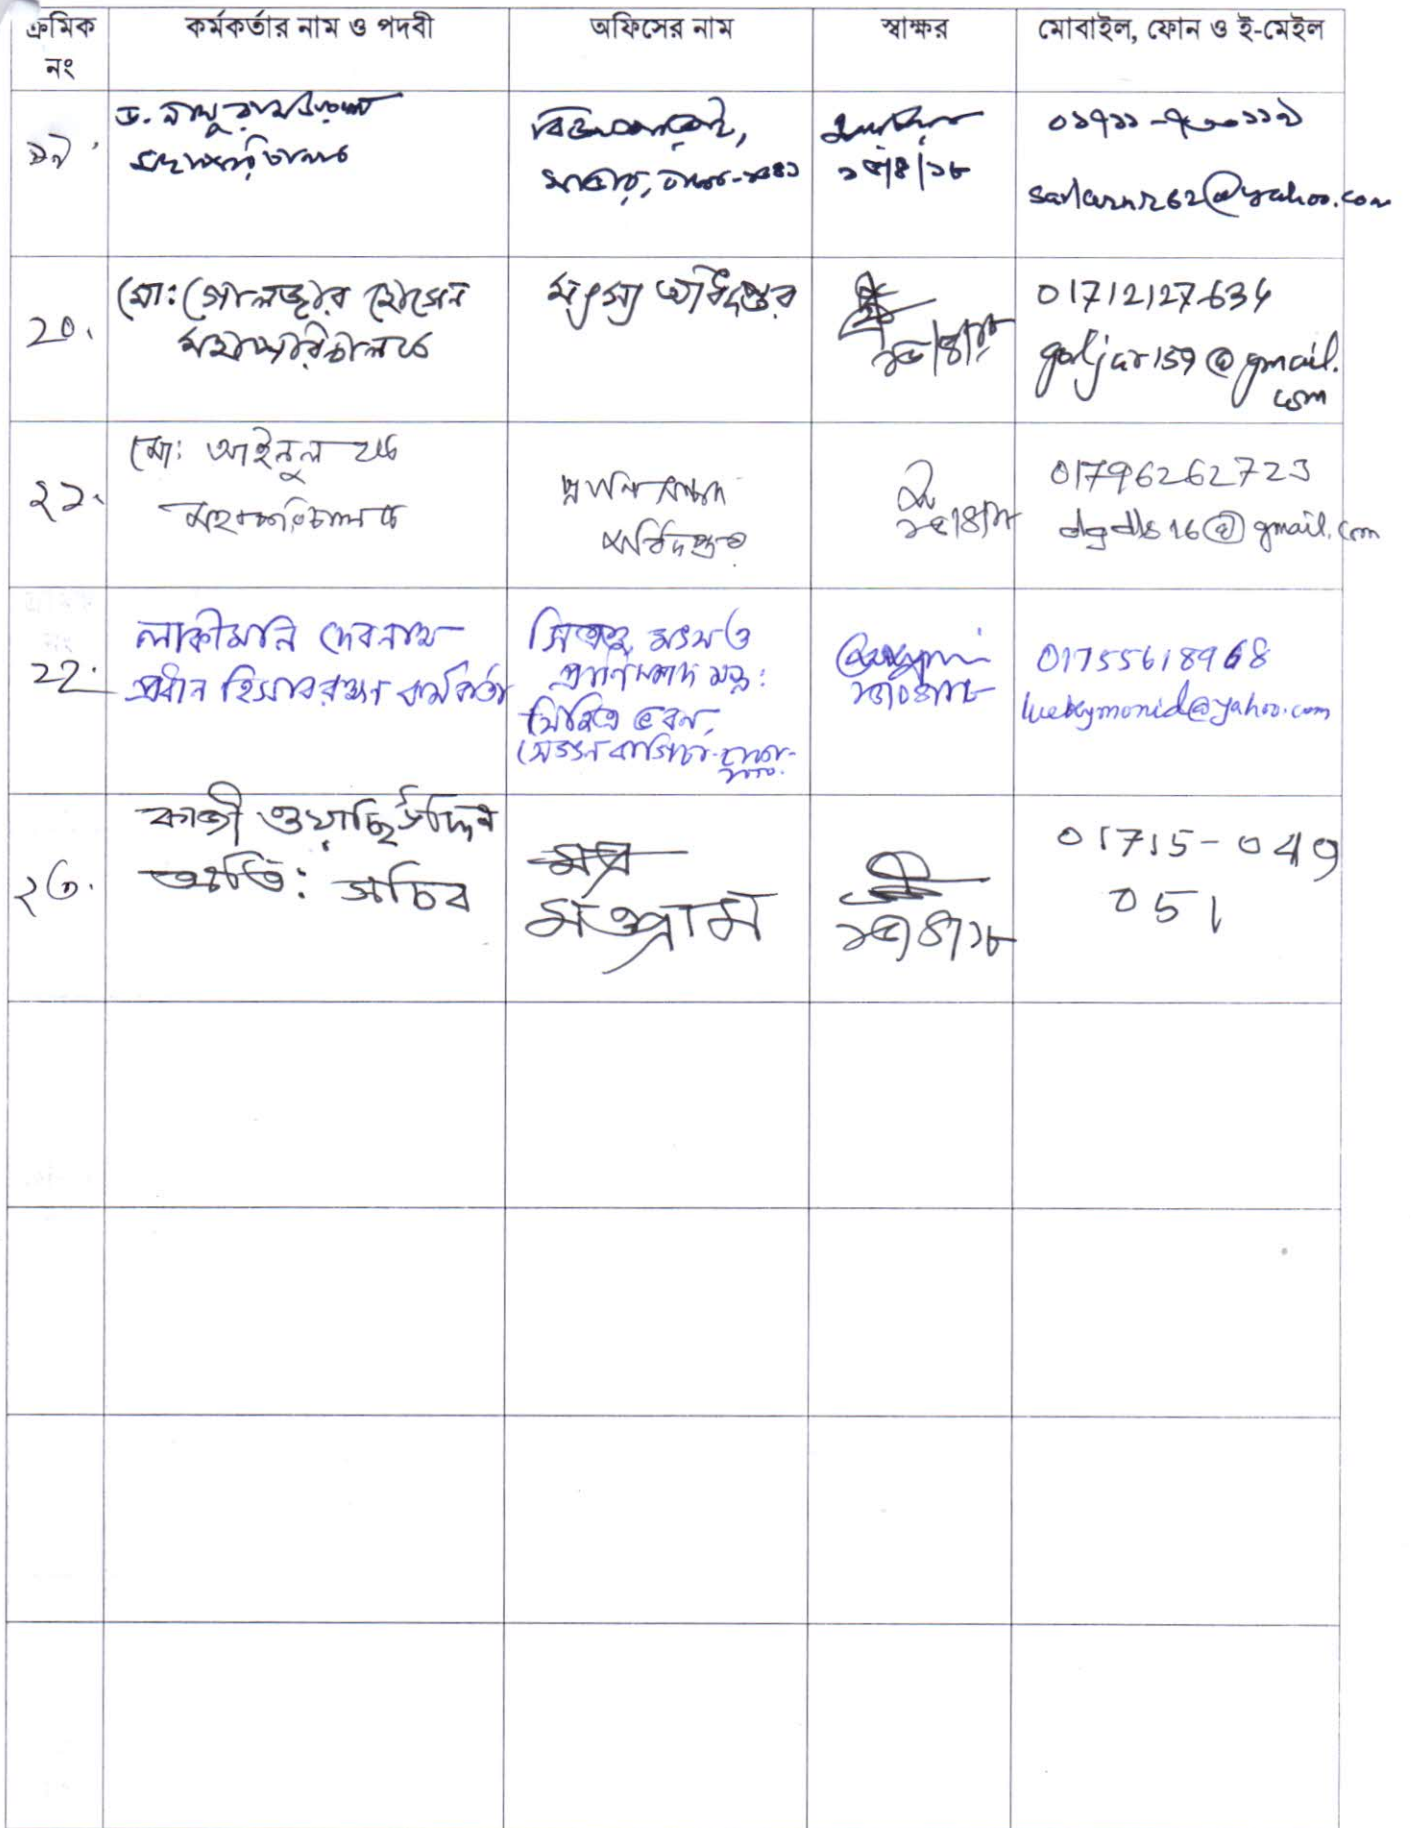 ক্রমিক নং কর্মকর্তার নাম ও পদবী অফিসের নাম স্বাক্ষর মোবাইল, ফোন ও ই-মেইল
১৯.
ড. নাথু রাম সরকার
মহাপরিচালক
বিএলআরআই,
সাভার, ঢাকা-১৩৪১
১৫/৪/১৮
২০.
মো: গোলজার হোসেন
মহাপরিচালক
মৎস্য অধিদপ্তর
01712127634
goljar159@gmail.
com
২১.
মো: আইনুল হক
মহাপরিচালক
প্রাণিসম্পদ
অধিদপ্তর
01796262723
dgdls16@gmail.com
২২.
লাকীমনি দেবনাথ
প্রধান হিসাবরক্ষণ কর্মকর্তা
মৎস্য ও
প্রাণিসম্পদ মন্ত্র:
ভবন,
01755618968
luckymonid@yahoo.com
২৩.
কাজী ওয়াছি উদ্দিন
অতি: সচিব
মপ্র
মওপ্রাম
১৫/৪/১৮
01715-049
051